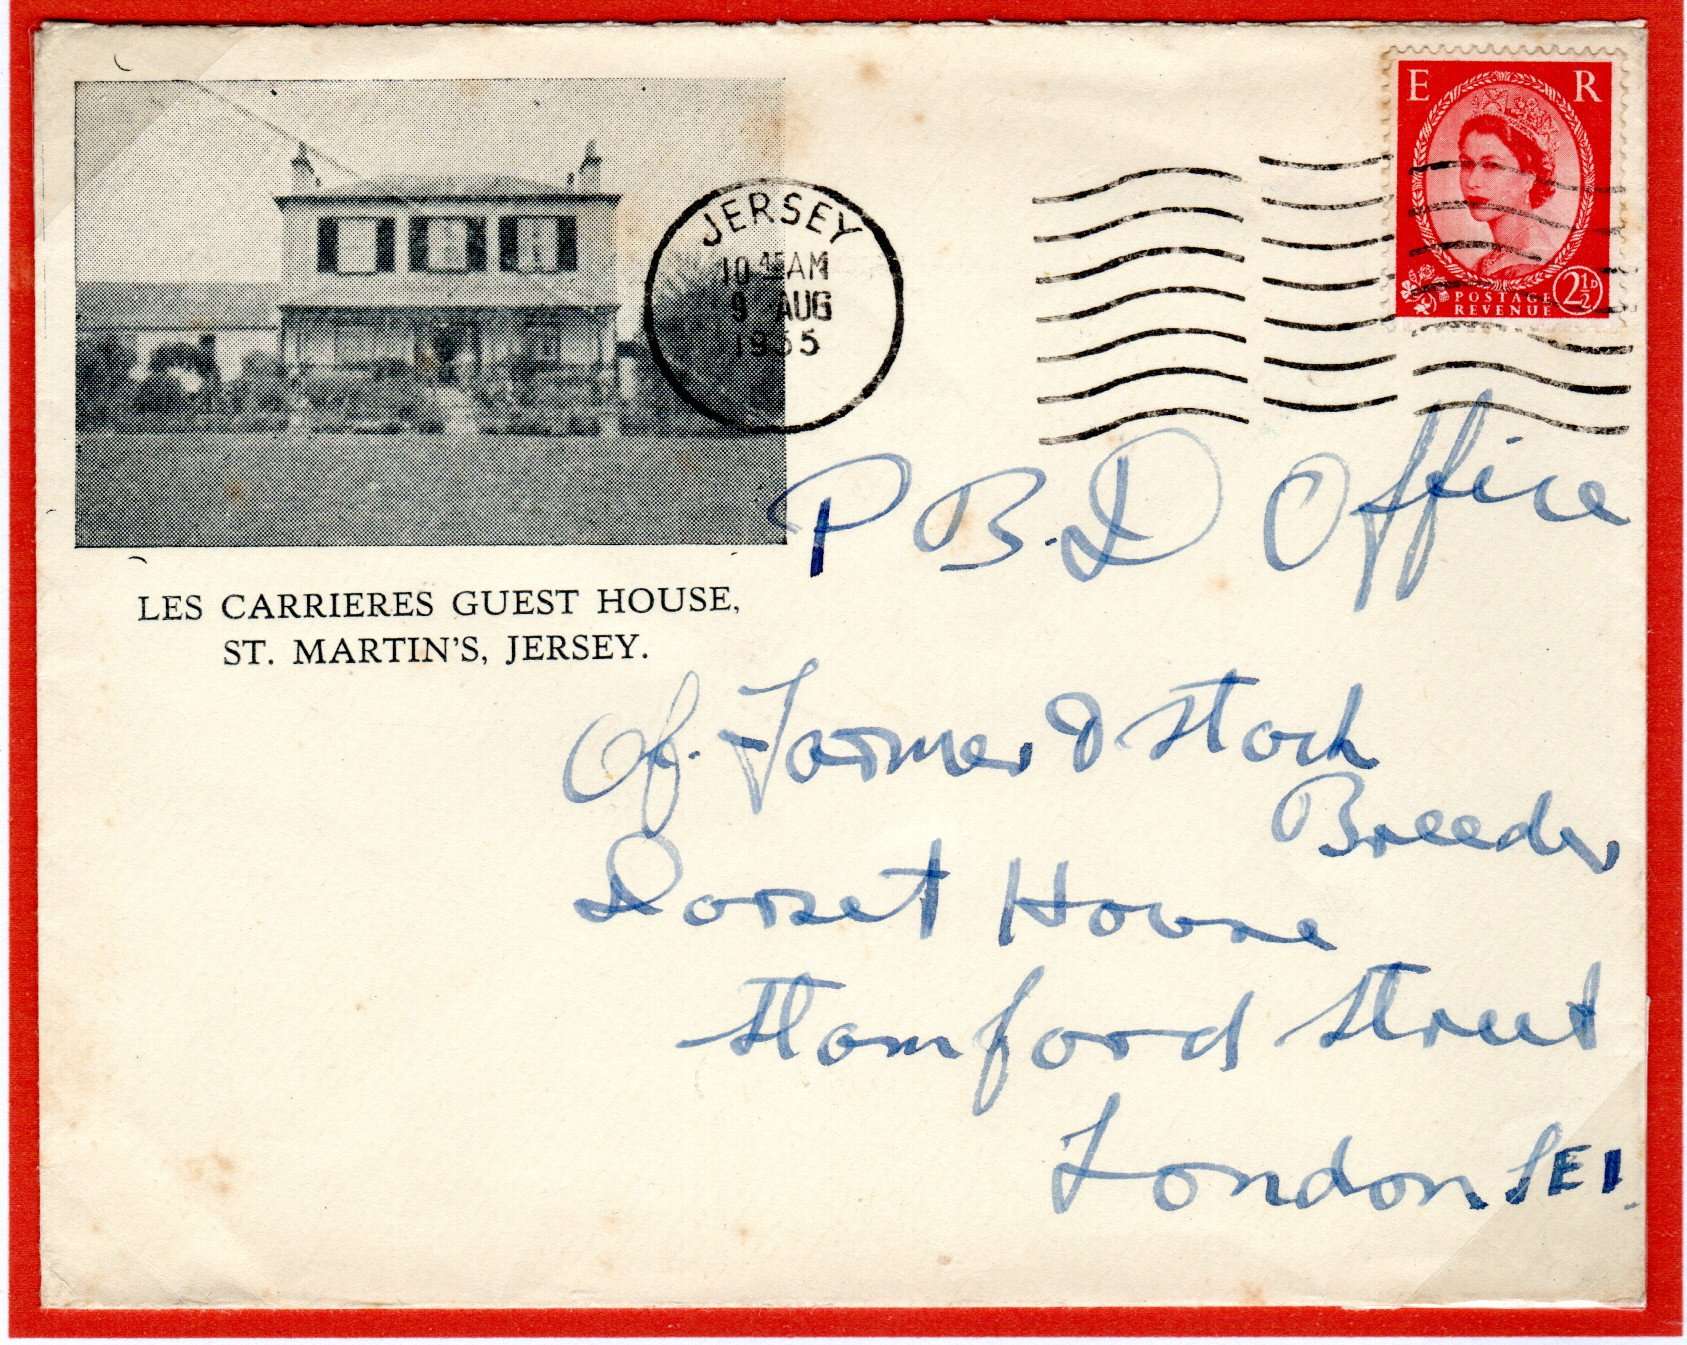 E R
POSTAGE
REVENUE
2½D
JERSEY
10 45 AM
9 AUG
1955
LES CARRIERES GUEST HOUSE,
ST. MARTIN'S, JERSEY.
P B.D Office
Of. Farmer & Stock
Breeder
Dorset House
Stamford Street
London SE1.